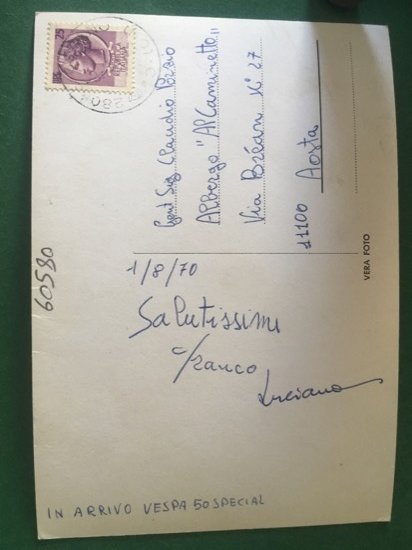 25
Gent Sig Claudio Bravo
Albergo "Al Caminetto"
Via Bréan N° 27
11100 Aosta
VERA FOTO
60580
1/8/70
Salutissimi
c/Franco
Luciano
IN ARRIVO VESPA 50 SPECIAL